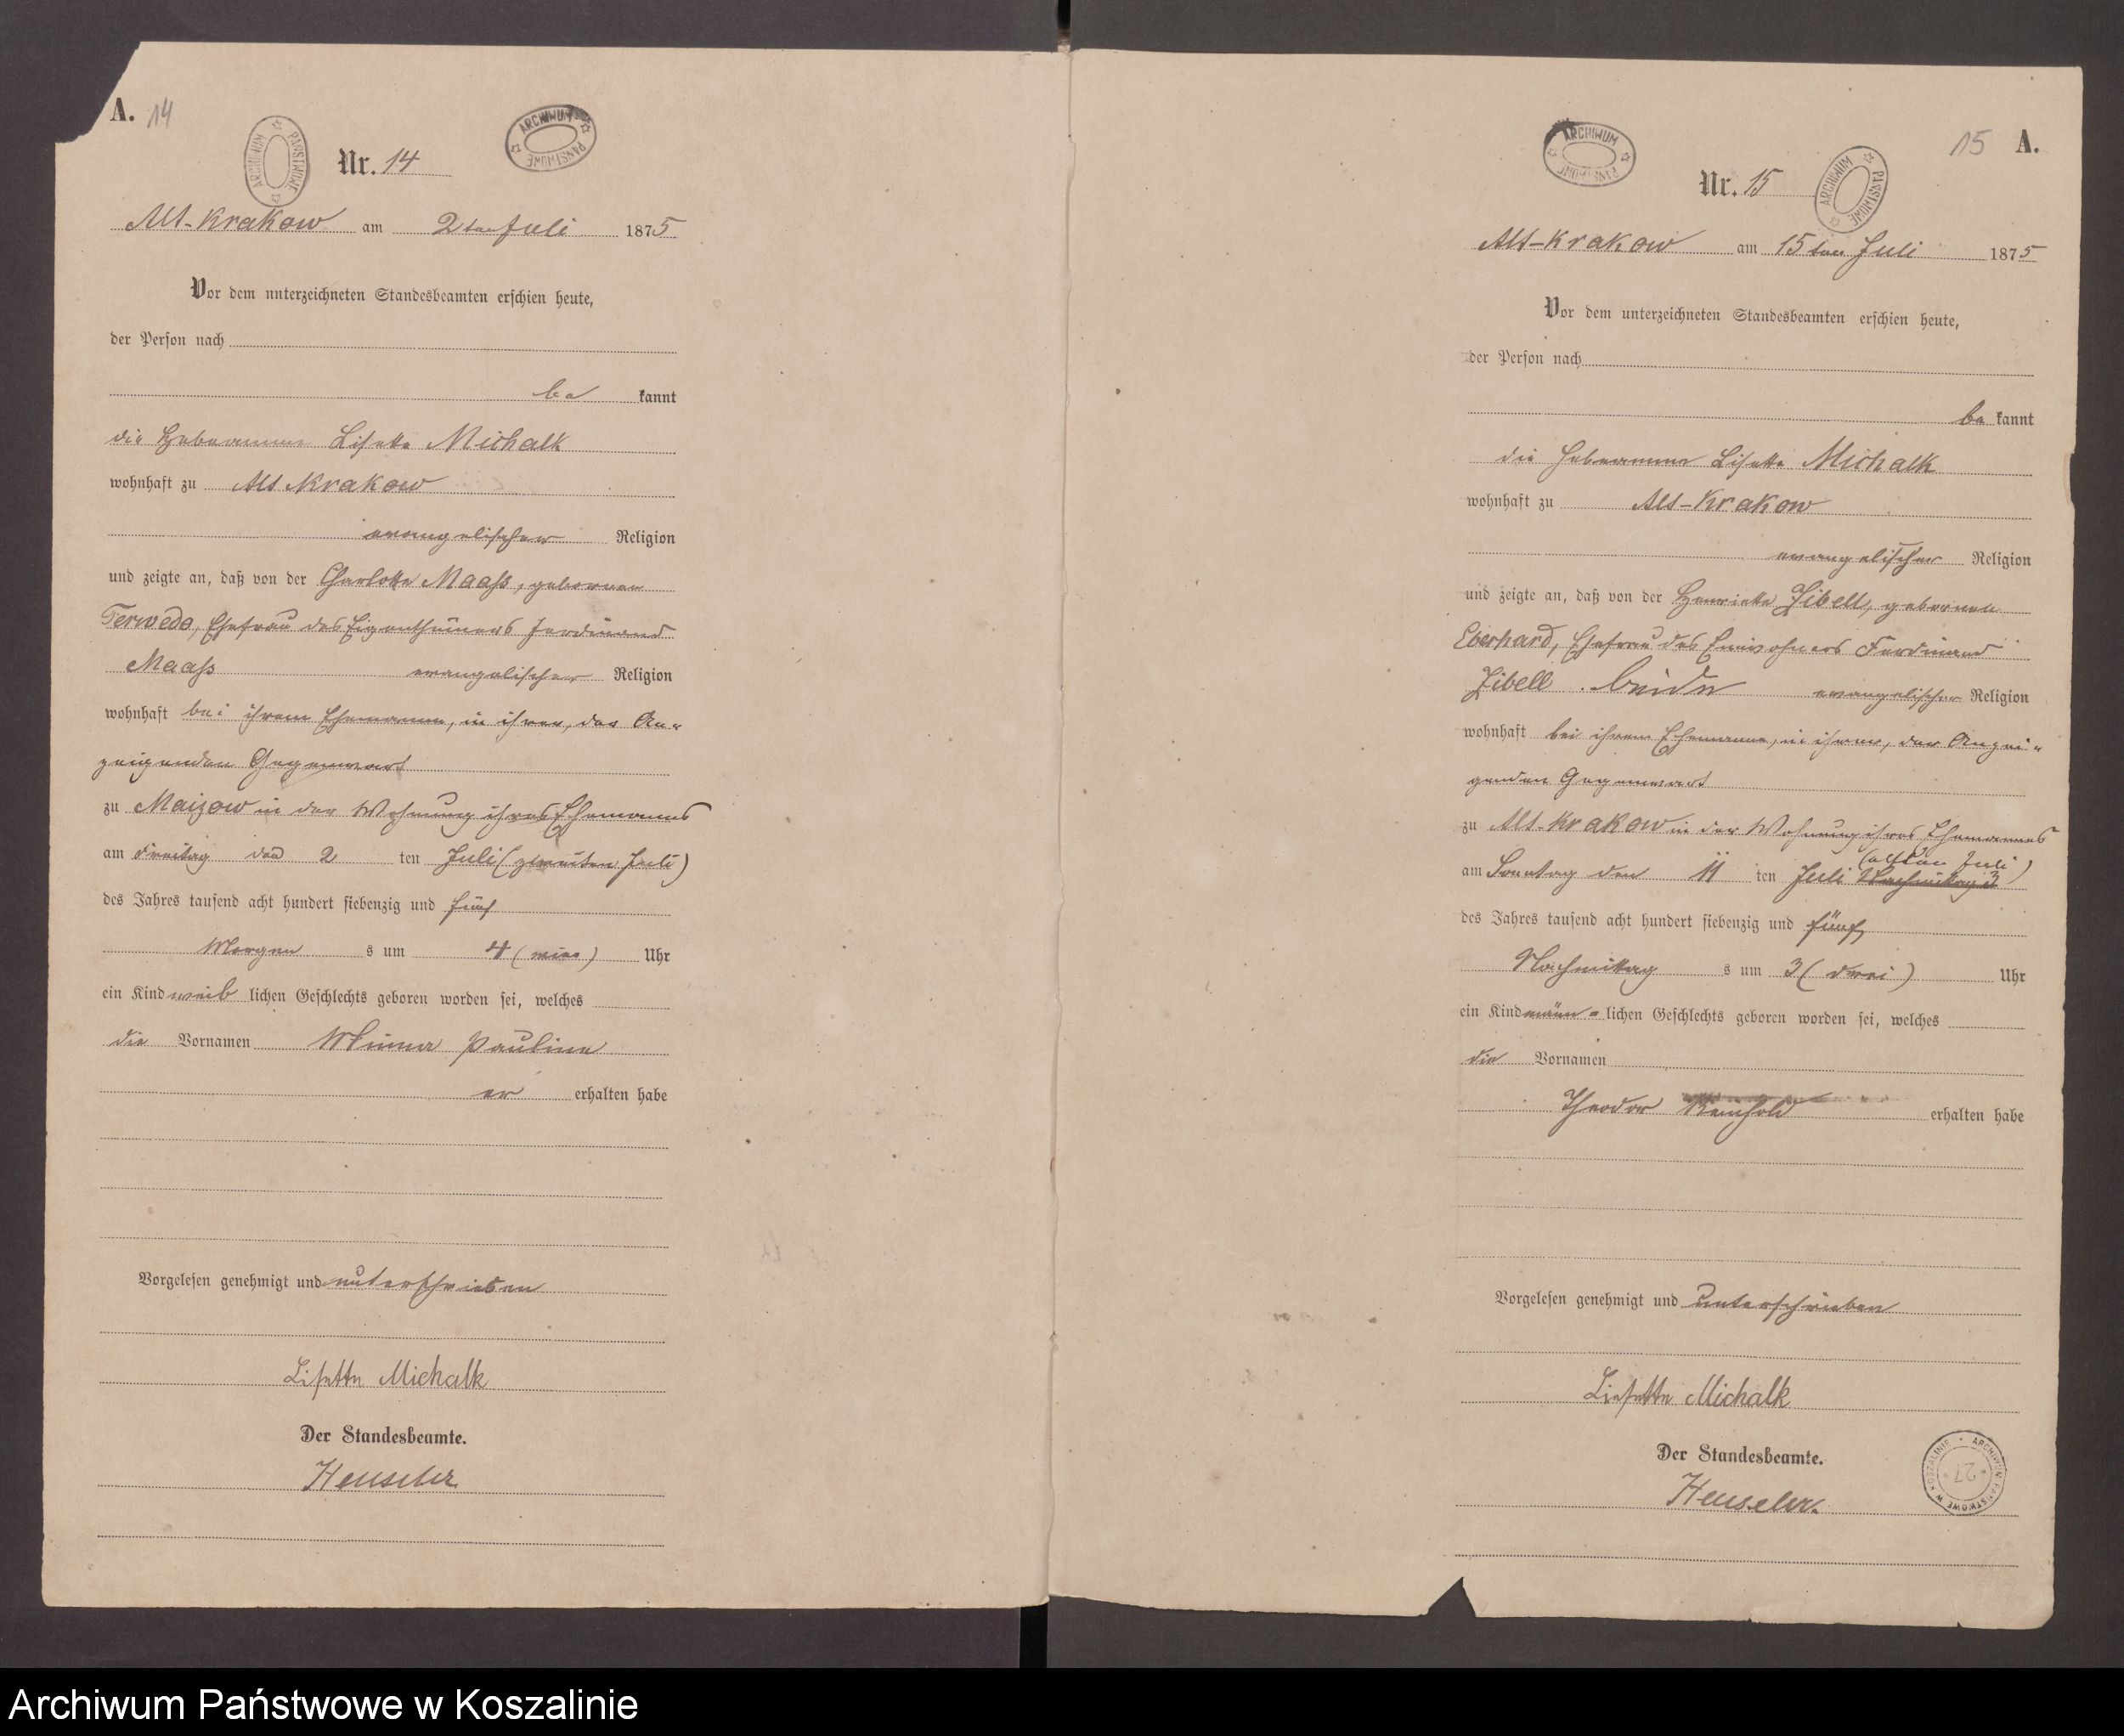 A. 14
ARCHIWUM PAŃSTWOWE
ARCHIWUM PAŃSTWOWE
Nr. 14
Alt-Krakow am 2ten Juli 1875
Vor dem unterzeichneten Standesbeamten erschien heute,
der Person nach
be kannt
die Hebeamme Lisette Michalk
wohnhaft zu Alt Krakow
evangelischer Religion
und zeigte an, daß von der Charlotte Maaß, geborenen
Terwedo, Ehefrau des Eigenthümers Ferdinand
Maaß evangelischer Religion
wohnhaft bei ihrem Ehemanne, in ihrer, der An-
zeigenden Gegenwart
zu Maizow in der Wohnung ihres Ehemanns
am Freitag den 2 ten Juli (zweiten Juli)
des Jahres tausend acht hundert siebenzig und fünf
Morgen s um 4 (vier) Uhr
ein Kind weib lichen Geschlechts geboren worden sei, welches
die Vornamen Minna Pauline
er erhalten habe
Vorgelesen genehmigt und unterschrieben
Lisette Michalk
Der Standesbeamte.
Henseler
15 A.
ARCHIWUM PAŃSTWOWE
ARCHIWUM PAŃSTWOWE
Nr. 15
Alt-Krakow am 15ten Juli 1875
Vor dem unterzeichneten Standesbeamten erschien heute,
der Person nach
be kannt
die Hebeamme Lisette Michalk
wohnhaft zu Alt-Krakow
evangelischer Religion
und zeigte an, daß von der Henriette Zibell, geborenen
Eberhard, Ehefrau des Einwohners Ferdinand
Zibell beide evangelischer Religion
wohnhaft bei ihrem Ehemanne, in ihrer, der Anzei-
genden Gegenwart
zu Alt-Krakow in der Wohnung ihres Ehemannes
(elften Juli)
am Sonntag den 11 ten Juli Nachmittag 3
des Jahres tausend acht hundert siebenzig und fünf
Nachmittag s um 3 (drei) Uhr
ein Kind männ- lichen Geschlechts geboren worden sei, welches
die Vornamen
Theodor Reinhold erhalten habe
Vorgelesen genehmigt und unterschrieben
Liesette Michalk
Der Standesbeamte.
Henseler.
ARCHIWUM PAŃSTWOWE W KOSZALINIE
27
Archiwum Państwowe w Koszalinie